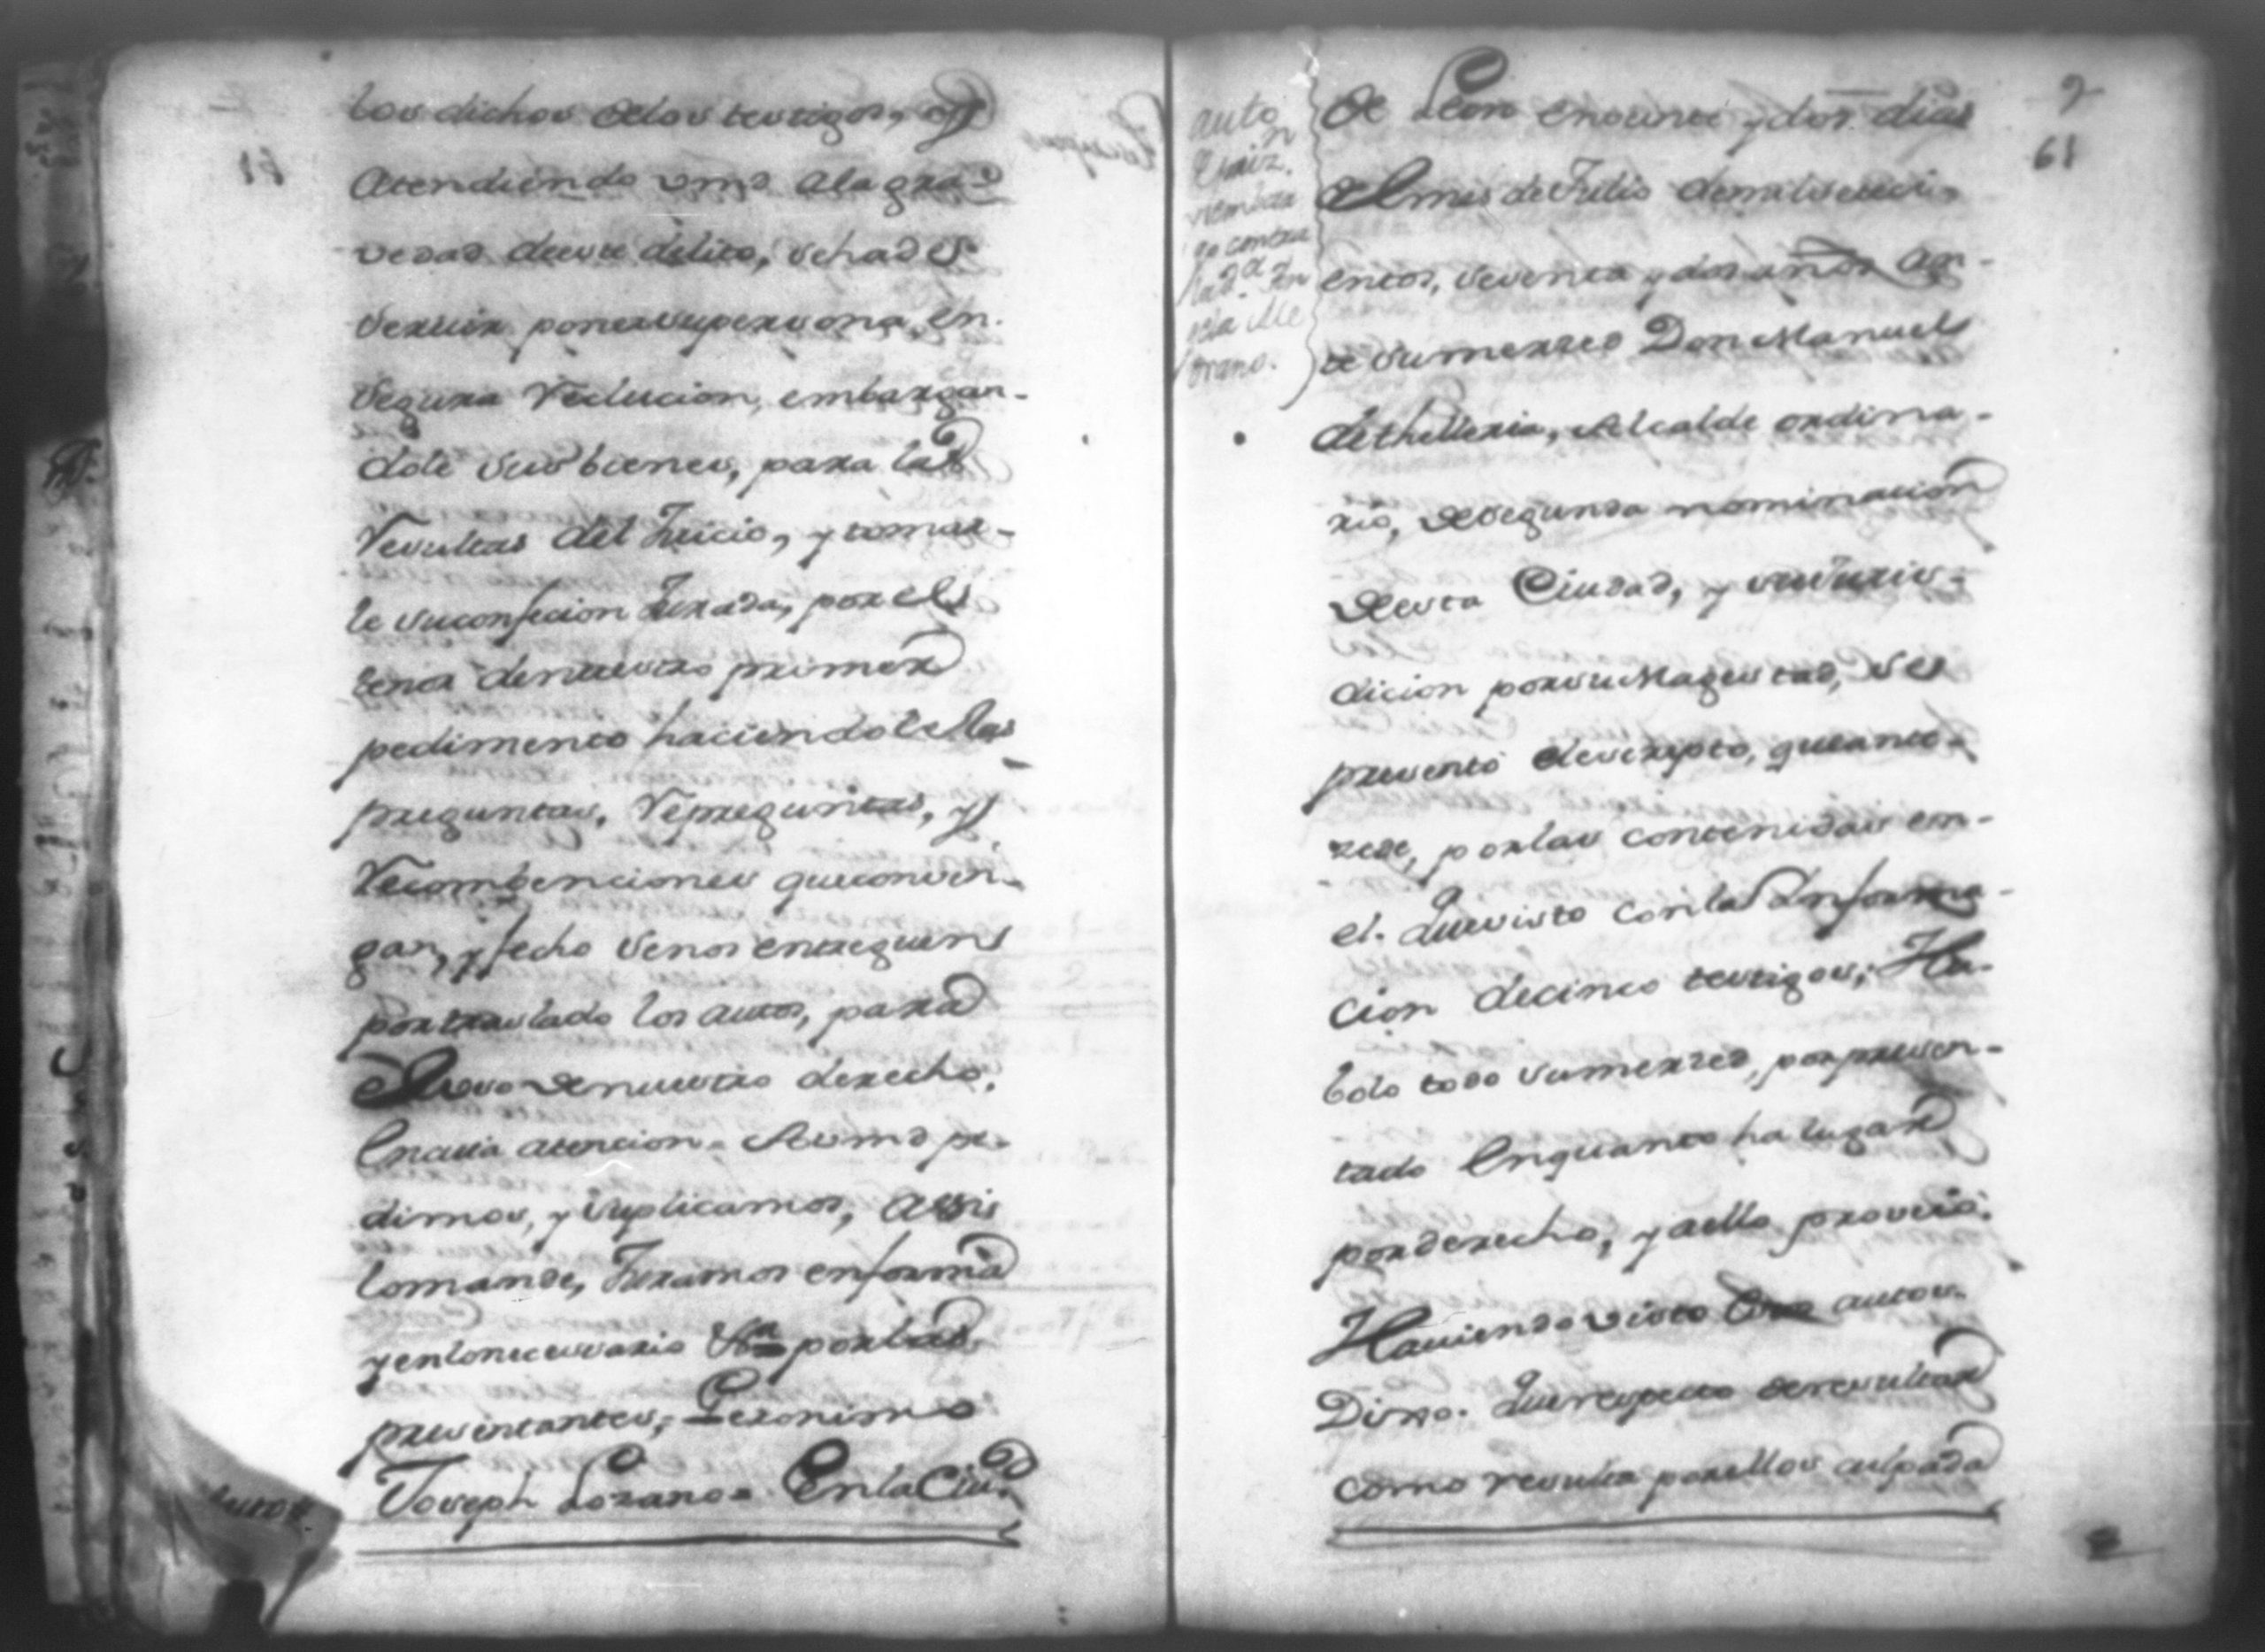 los dichos delos testigos, y
Atendiendo vmd ala gra-
vedad deeste delito, sehade
servir poner supersona, en
segura reclucion, embargan-
dole sus bienes, para las
resultas del Juicio, y tomar-
le suconfecion Jurada, por el
tenor denuestro primer
pedimento haciendole las
preguntas, repreguntas, y
recombenciones queconven-
gan, y fecho senos entreguen
por traslado los autos, para
el uso denuestro derecho,
Encuia atencion = Avmd pe-
dimos, y suplicamos, assi
lomande, Juramos enforma
yenlonecessario &ª por las
presentantes, Geronimo
Joseph Lozano = EnlaCiud
auto
embar
go contra
lad.ª
de Leon enveinte ydos dias
delmes deJulio demilseteci-
entos, setenta ydosaños An-
te sumerzed Don Manuel
dethelleria, Alcalde ordina-
rio, desegunda nominacion
deesta Ciudad, y sujuris-
dicion porsuMagestad, se
presentó eleescripto, queante-
zede, porlas contenidas en
el. Quevisto conla Informa-
cion decinco testigos; Hu-
bolo todo sumerzed, porpresen-
tado Enquanto ha lugar
porderecho, yaello proveió:
Haviendo visto Otros autos.
Dixo. Querespecto deresultar
como resulta porellos culpada
2
61